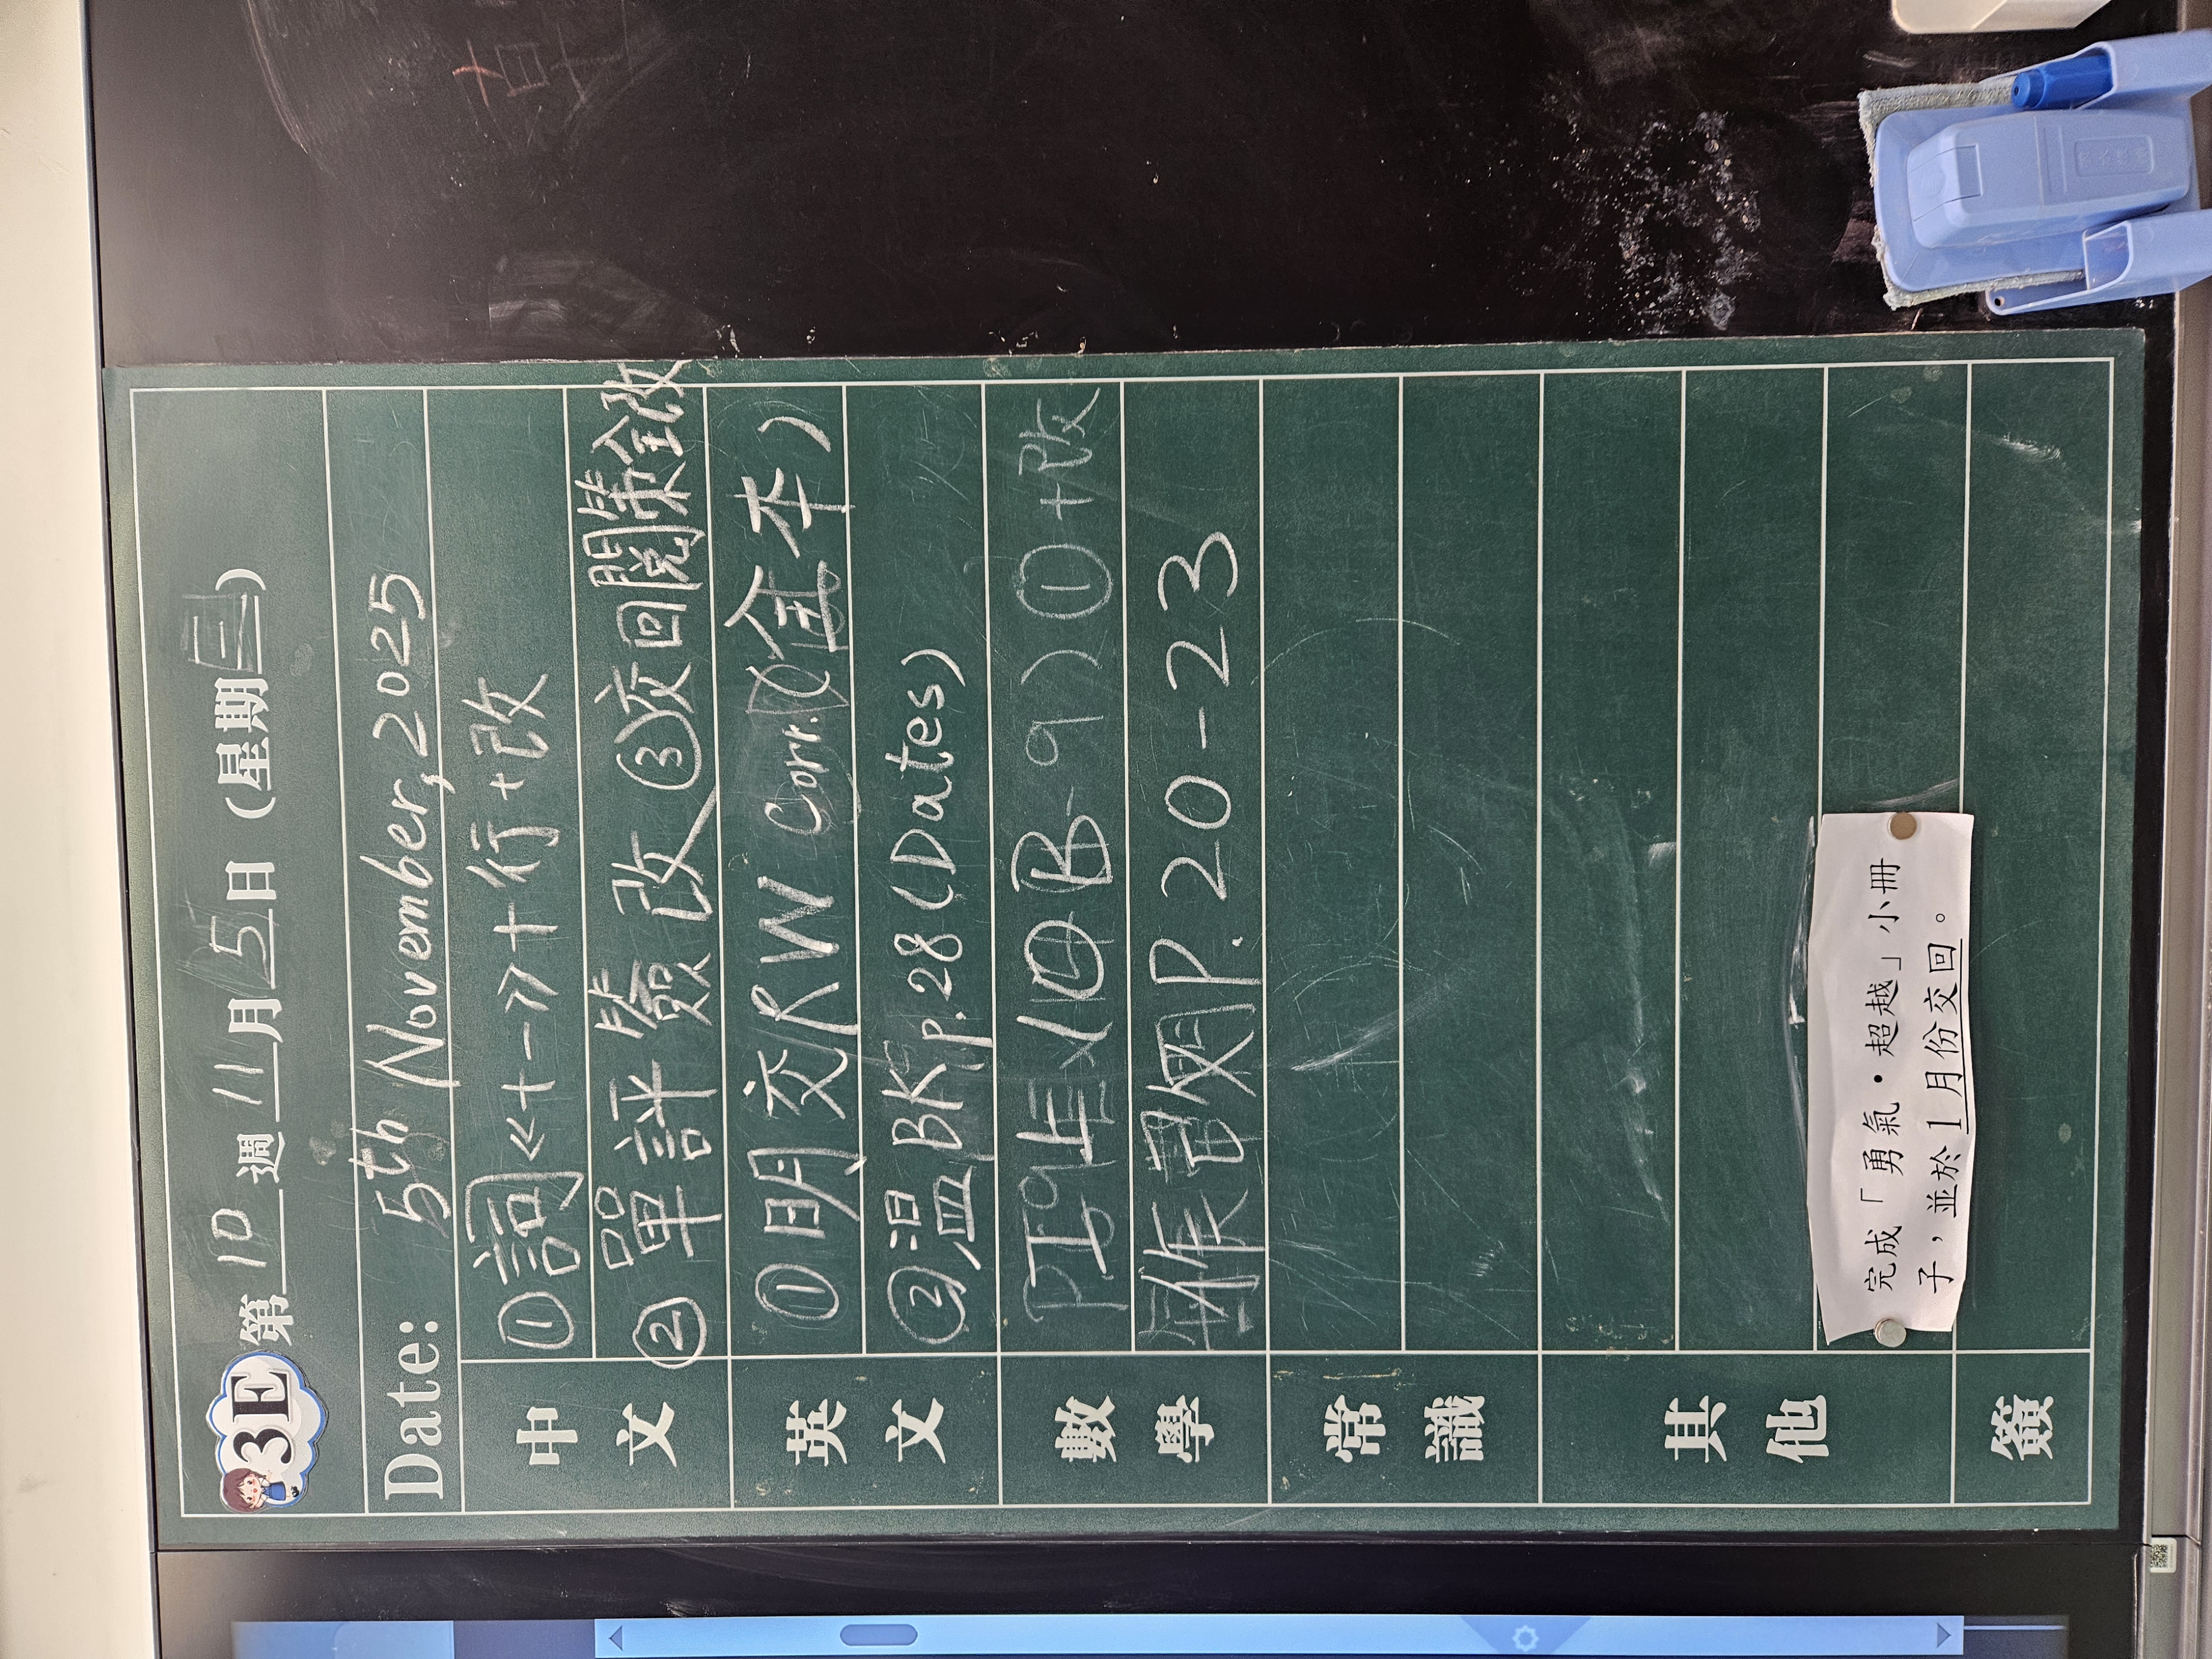 3E 第10週 11月5日 (星期三)
Date: 5th November, 2025
中文
①詞《十一》+行+改
②單評 檢 改 ③交回閱築全改
英文
①明交RW Corr.(全本)
②温BK p.28 (Dates)
數學
P.20-23
常識
其他
完成「勇氣•超越」小冊
子，並於1月份交回。
簽